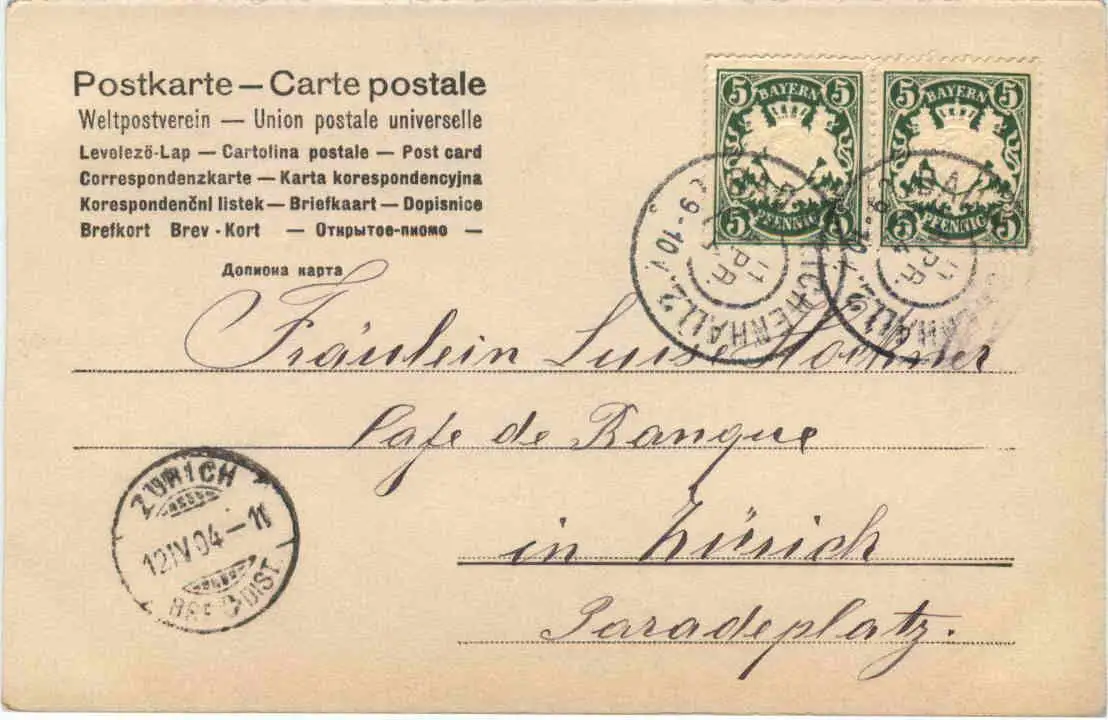 Postkarte — Carte postale
Weltpostverein — Union postale universelle
Levelező-Lap — Cartolina postale — Post card
Correspondenzkarte — Karta korespondencyjna
Korespondenčnl listek — Briefkaart — Dopisnice
Brefkort Brev-Kort — Открытое-пиомо —
Допиона карта
5 BAYERN 5
5 PFENNIG 5
5 BAYERN 5
5 PFENNIG 5
BAD REICHENHALL 2
11 APR.
9-10 V.
BAD REICHENHALL 2
11 APR.
9-10 V.
Fräulein Luise
Cafe de Banque
in Zürich
Paradeplatz.
ZÜRICH
12 IV 04 – 11
BRF. DIST.